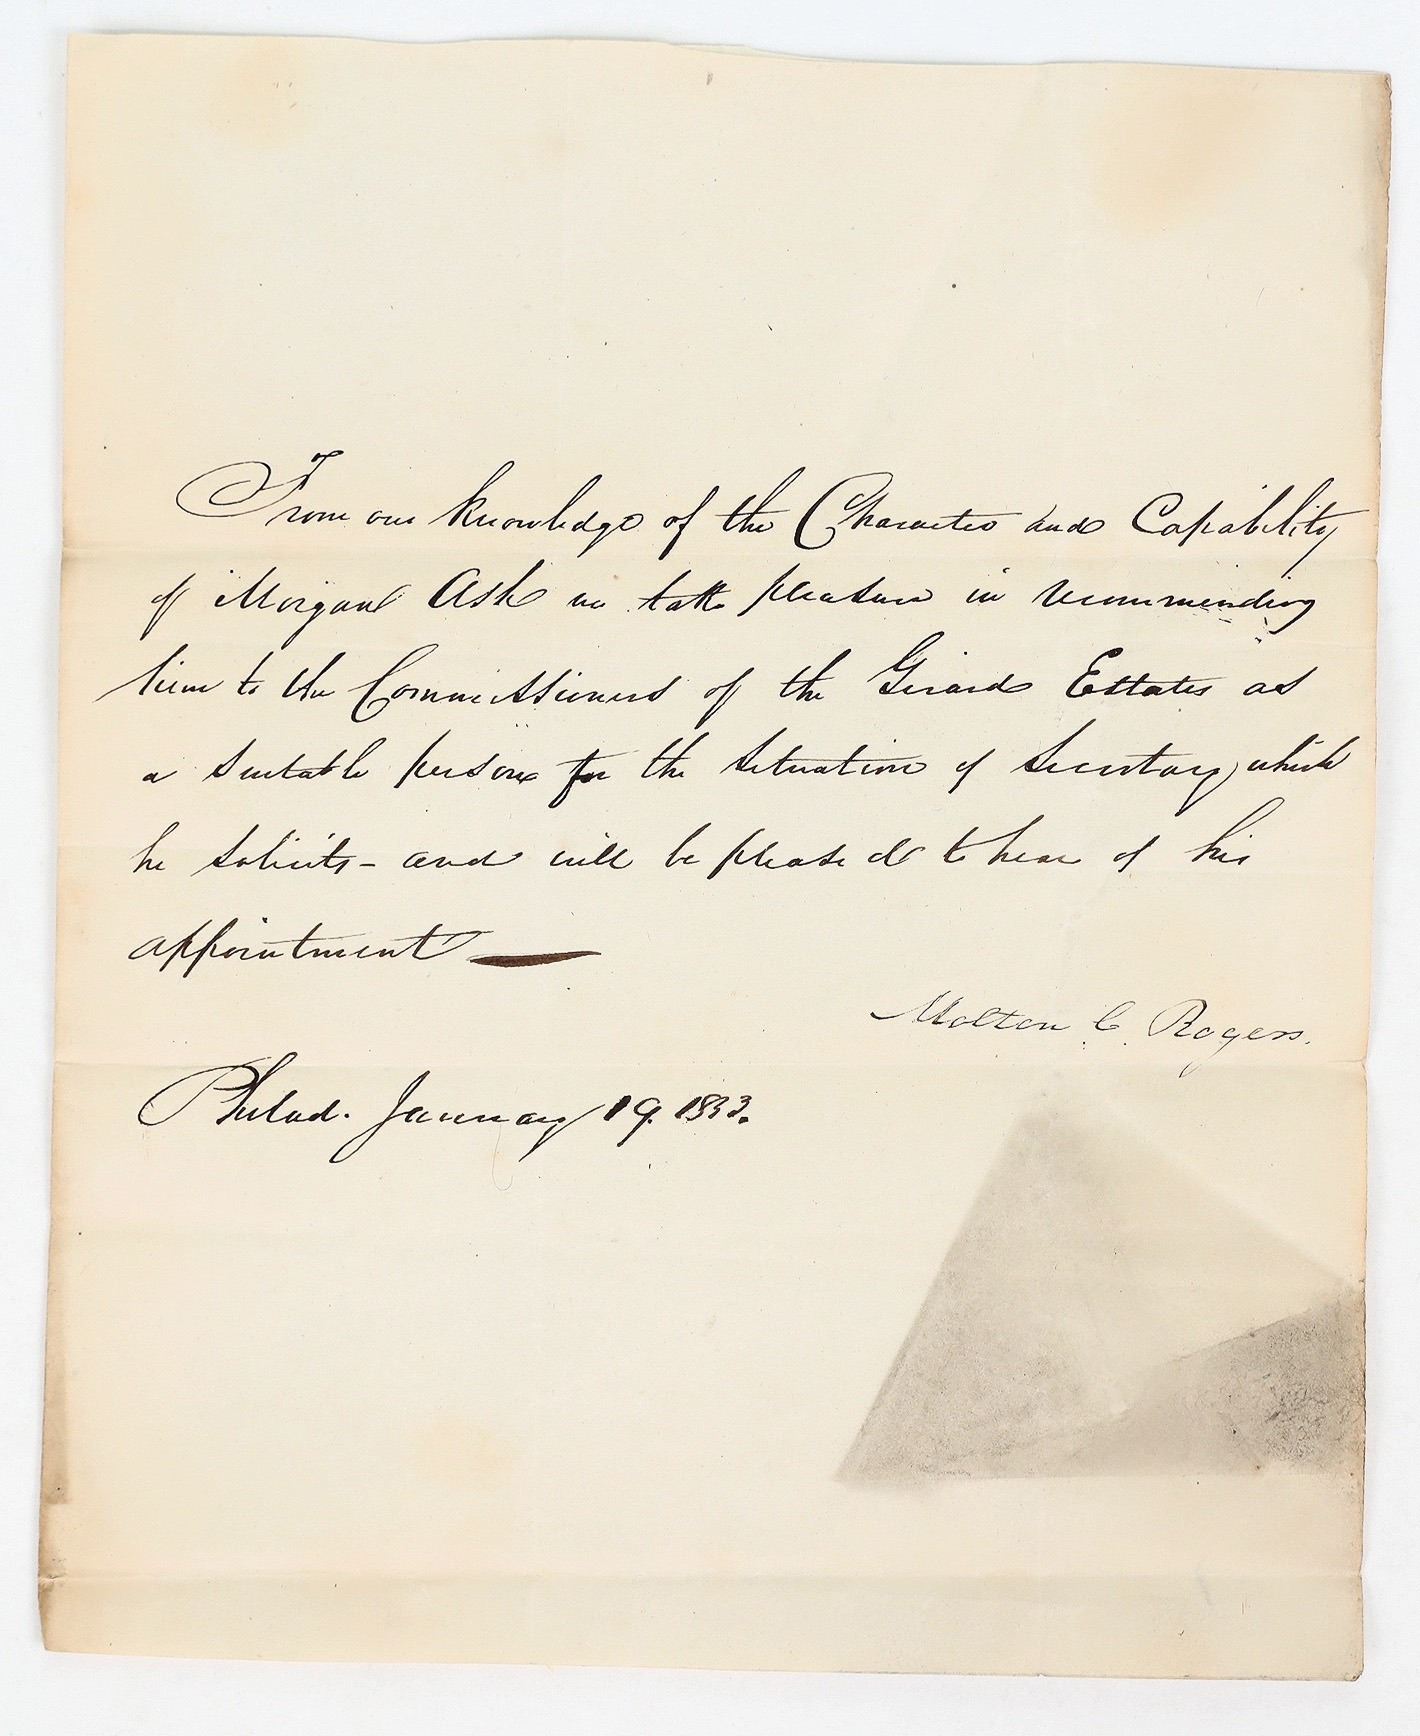 From our knowledge of the Character and Capability
of Morgan Ash we take pleasure in recommending
him to the Commissioners of the Girard Estates as
a suitable person for the situation of Secretary, which
he solicits - and will be pleased to hear of his
appointment —
Molton C. Rogers.
Philad. January 19. 1833.